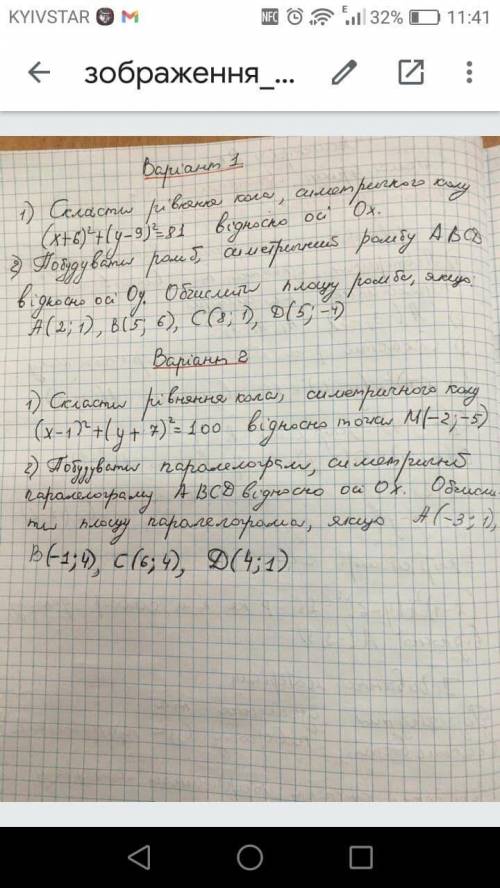 KYIVSTAR 32% 11:41
зображення_...
Варіант 1
1) Скласти рівняння кола, симетричного колу
(x+6)²+(y-9)²=81 відносно осі Ox.
2) Побудувати ромб, симетричний ромбу ABCD
відносно осі Oy. Обчислити площу ромба, якщо
A(2; 1), B(5; 6), C(8; 1), D(5; -4)
Варіант 2
1) Скласти рівняння кола, симетричного колу
(x-1)²+(y+7)²=100 відносно точки M(-2; -5)
2) Побудувати паралелограм, симетричний
паралелограму ABCD відносно осі Ox. Обчисли
ти площу паралелограма, якщо A(-3; 1),
B(-1; 4), C(6; 4), D(4; 1)